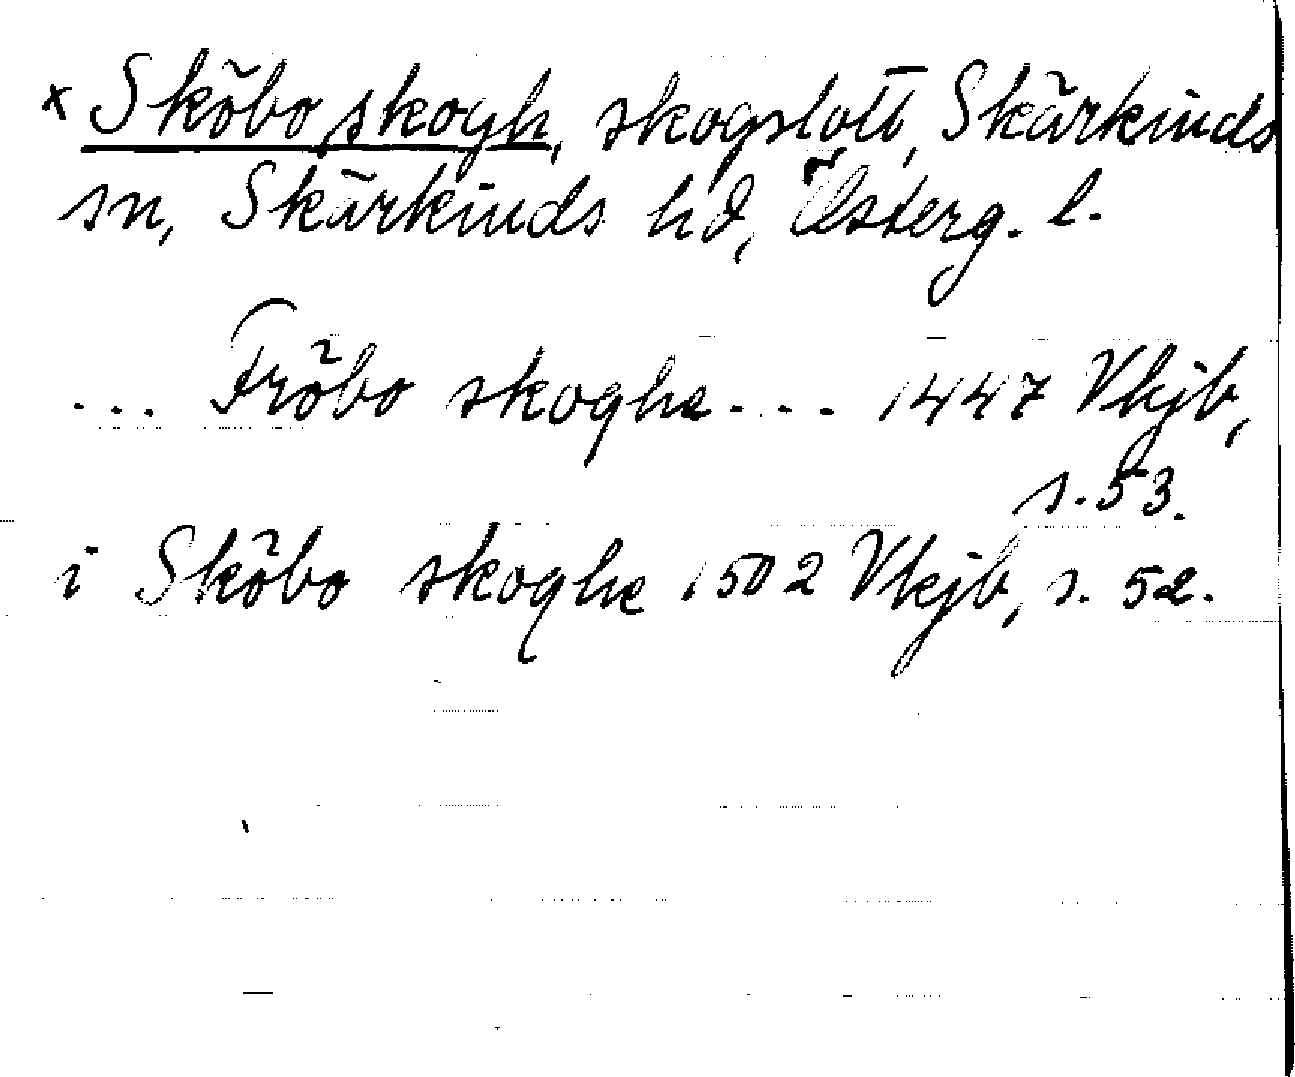 x Sköbo skogh, skogslott, Skärkinds
sn, Skärkinds hd, Österg. l.
... Fröbo skoghe .... 1447 Vkjb,
s. 53.
i Sköbo skoghe 1502 Vkjb, s. 52.